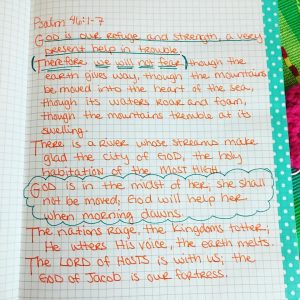 Psalm 46:1-7
GOD is our refuge and strength, a very
present help in trouble.
(Therefore we will not fear) though the
earth gives way, though the mountains
be moved into the heart of the sea,
though its waters roar and foam,
though the mountains tremble at its
swelling.
There is a river whose streams make
glad the city of GOD, the holy
habitation of the MOST HIGH.
GOD is in the midst of her; she shall
not be moved; God will help her
when morning dawns.
The nations rage, the kingdoms totter;
He utters His voice, the earth melts.
The LORD of HOSTS is with us; the
GOD of Jacob is our fortress.